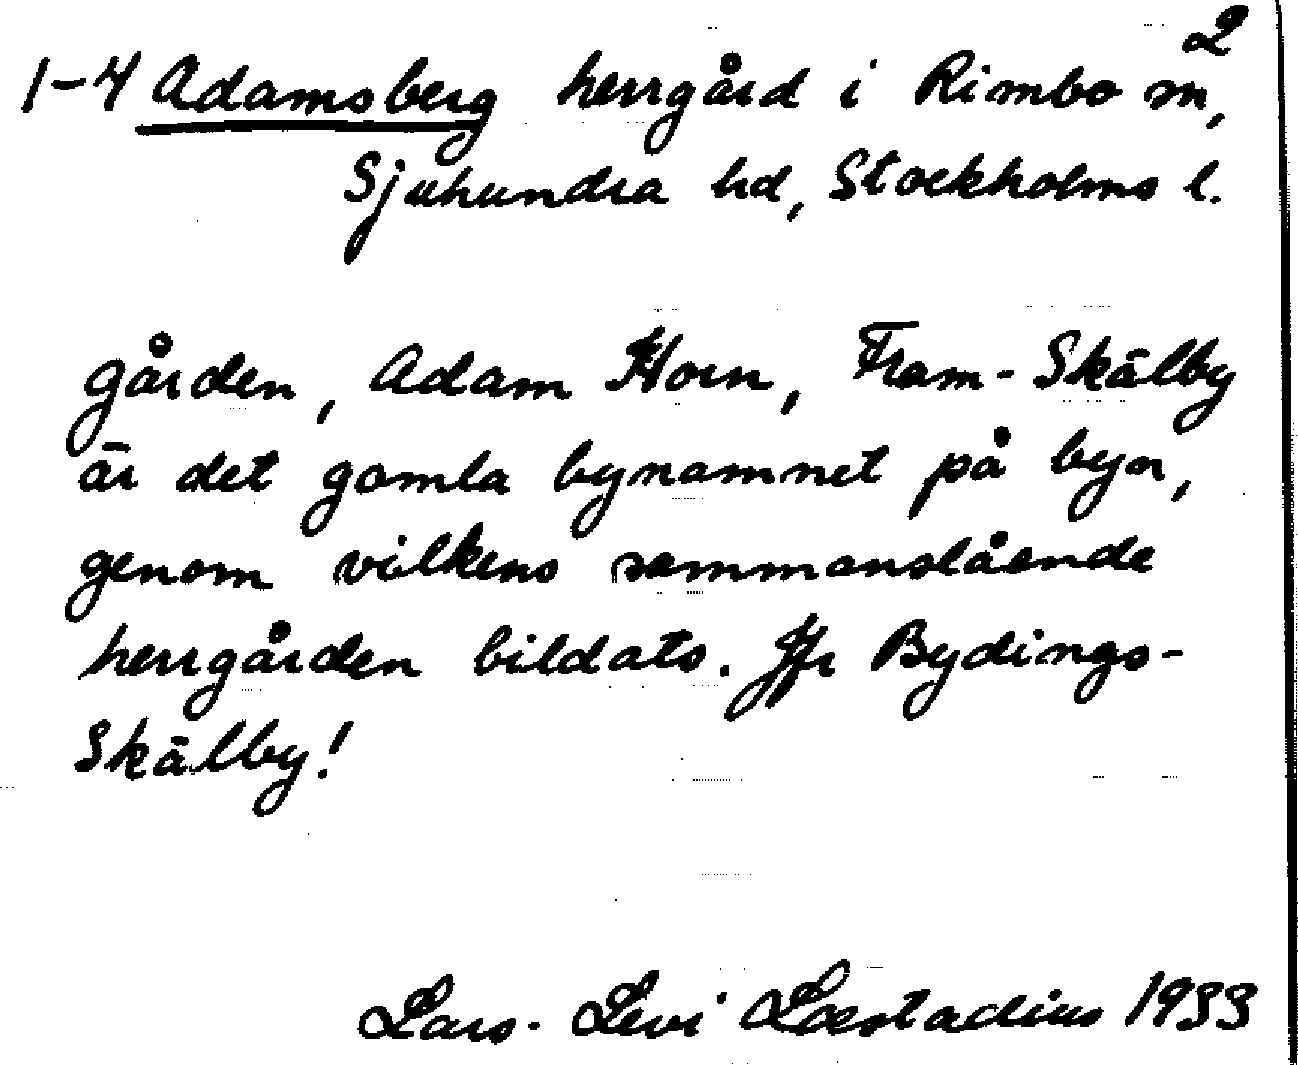 2
1-4 Adamsberg herrgård i Rimbo sn,
Sjuhundra hd, Stockholms l.
gården, Adam Horn, Fram-Skälby
är det gamla bynamnet på byn,
genom vilkens sammanslående
herrgården bildats. Jfr Bydings-
Skälby!
Lars-Levi Læstadius 1933